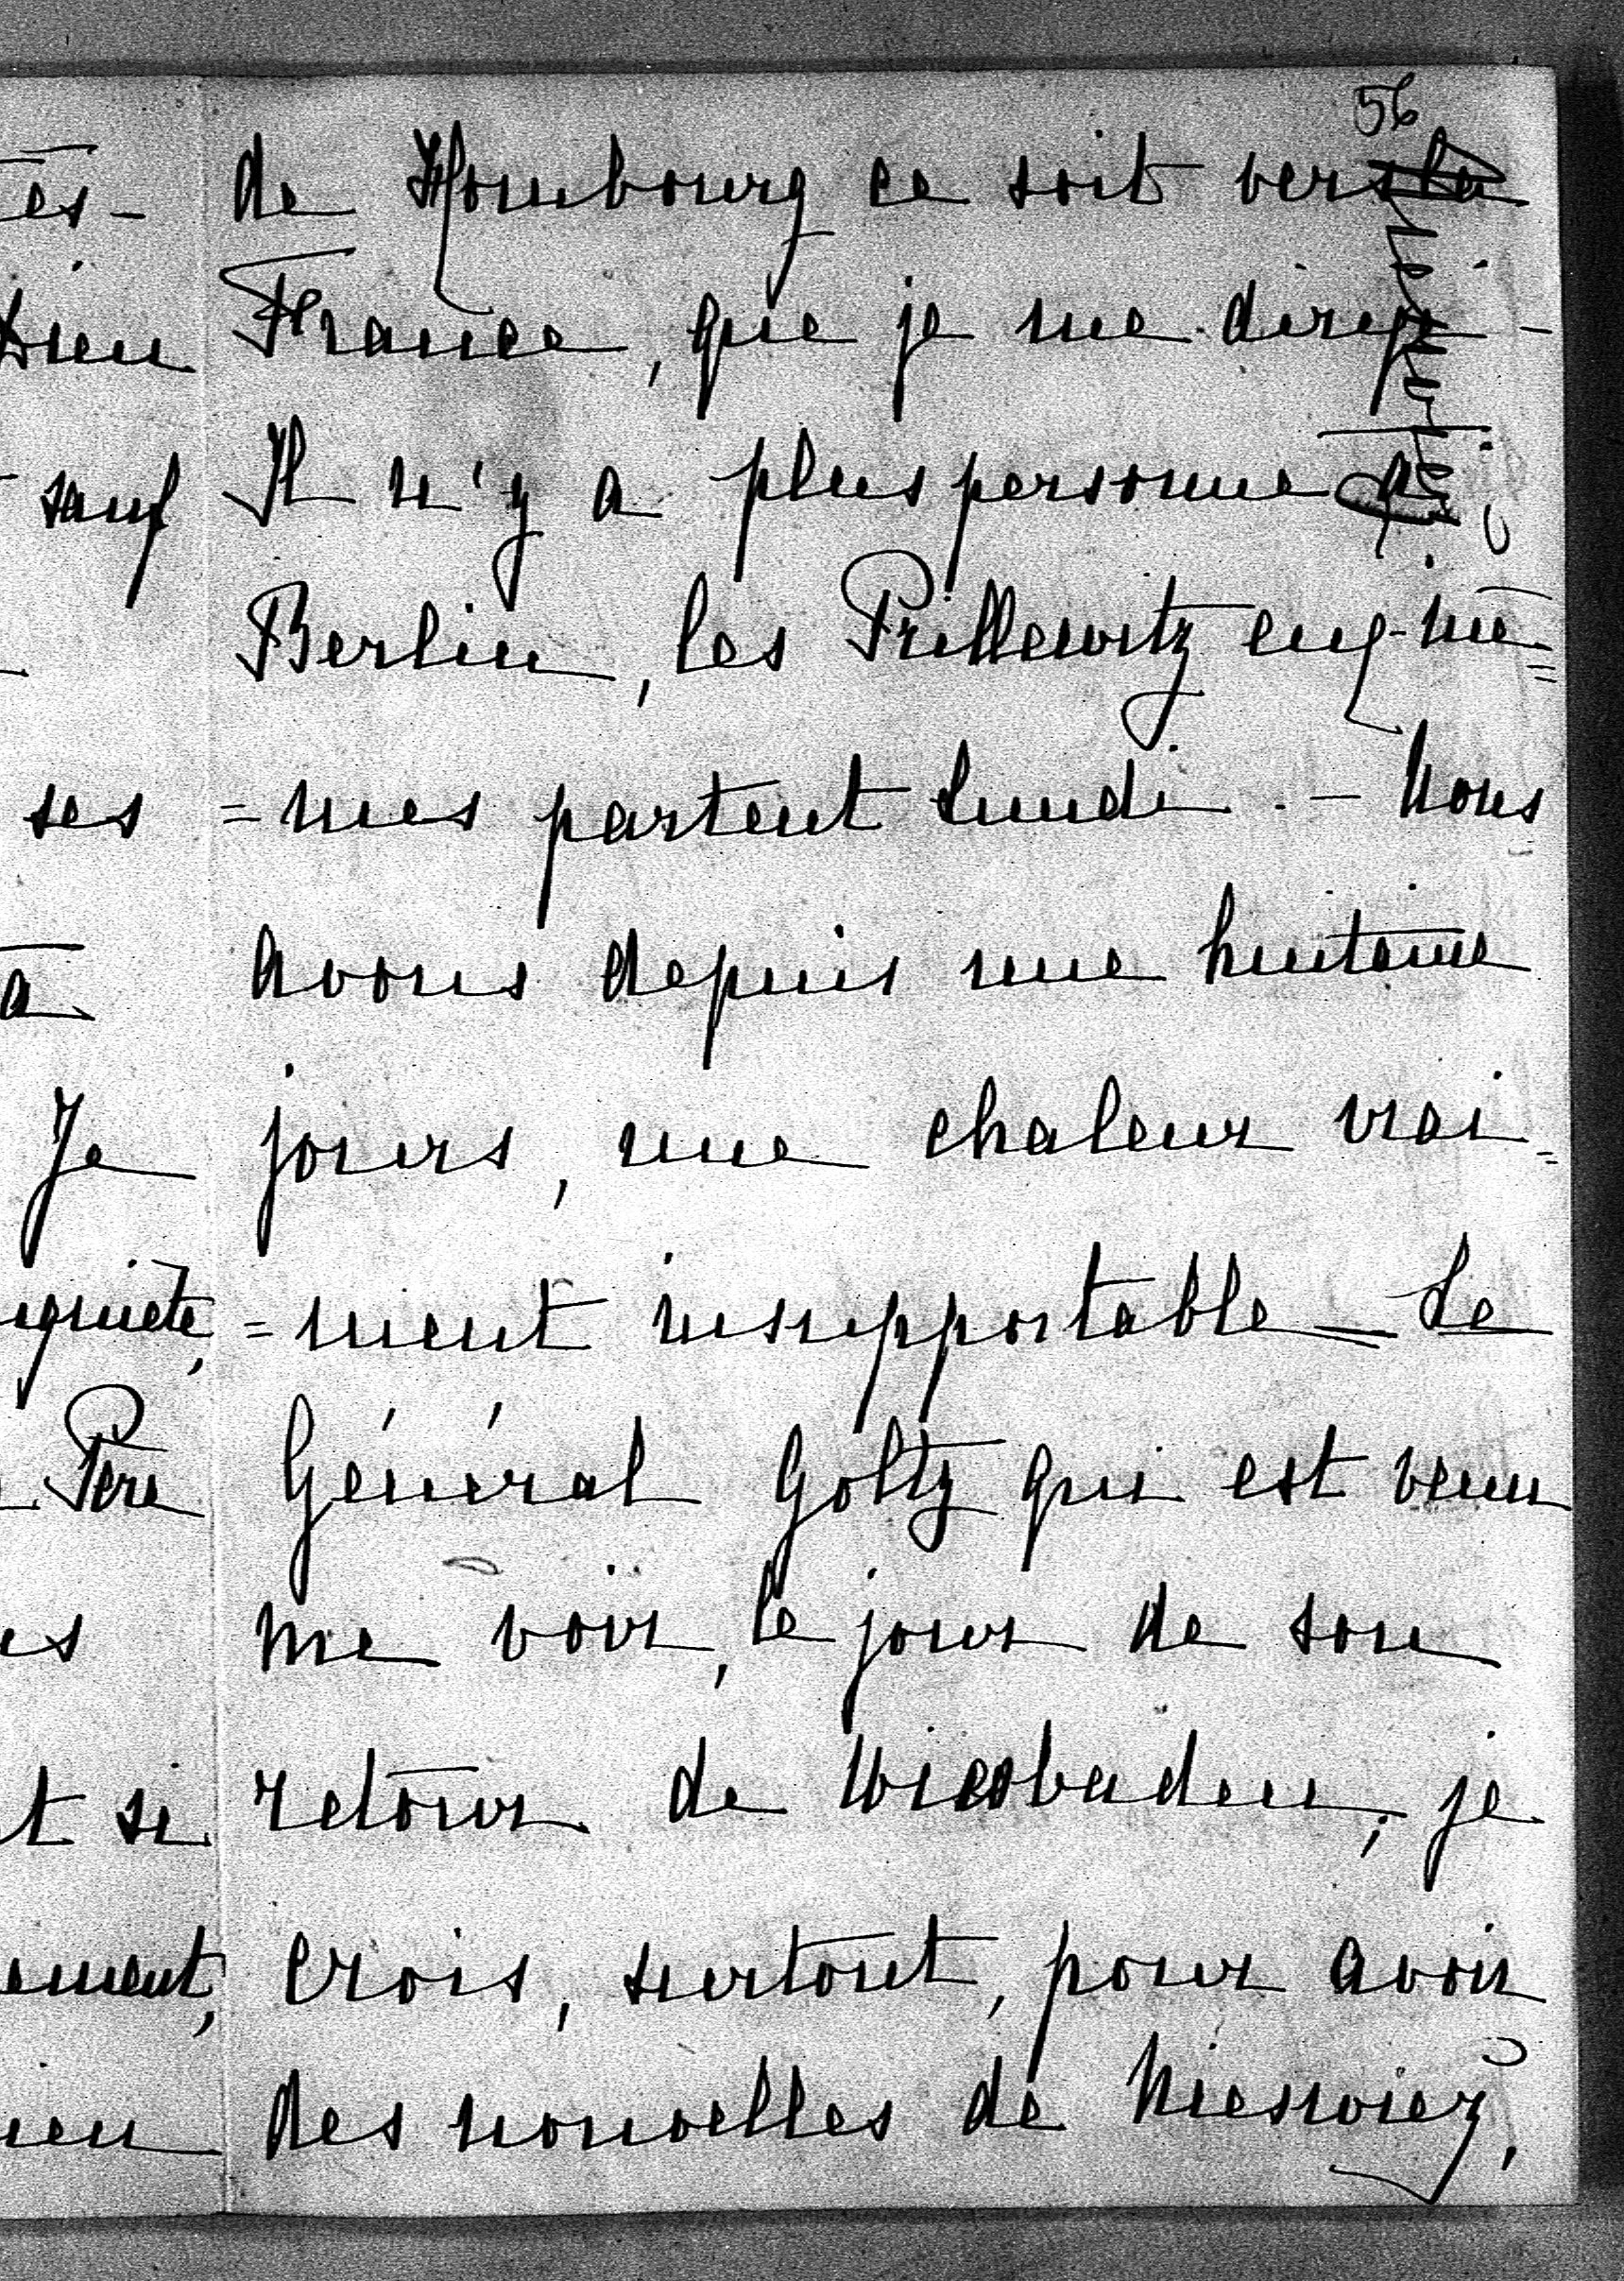 56
de Hombourg ce soit vers la
France, que je me dirige -
Il n'y a plus personne à
Berlin, les Prillewitz eux-mê=
=mes partent Lundi. - Nous
avons depuis une huitaine
jours, une chaleur vrai=
=ment insupportable - Le
Général Goltz qui est venu
me voir, le jour de son
retour de Wiesbaden, je
crois, surtout, pour avoir
des nouvelles de Nieswiez,
es -
Dieu
sauf
ses
a
Je
Père
es
t si
ement,